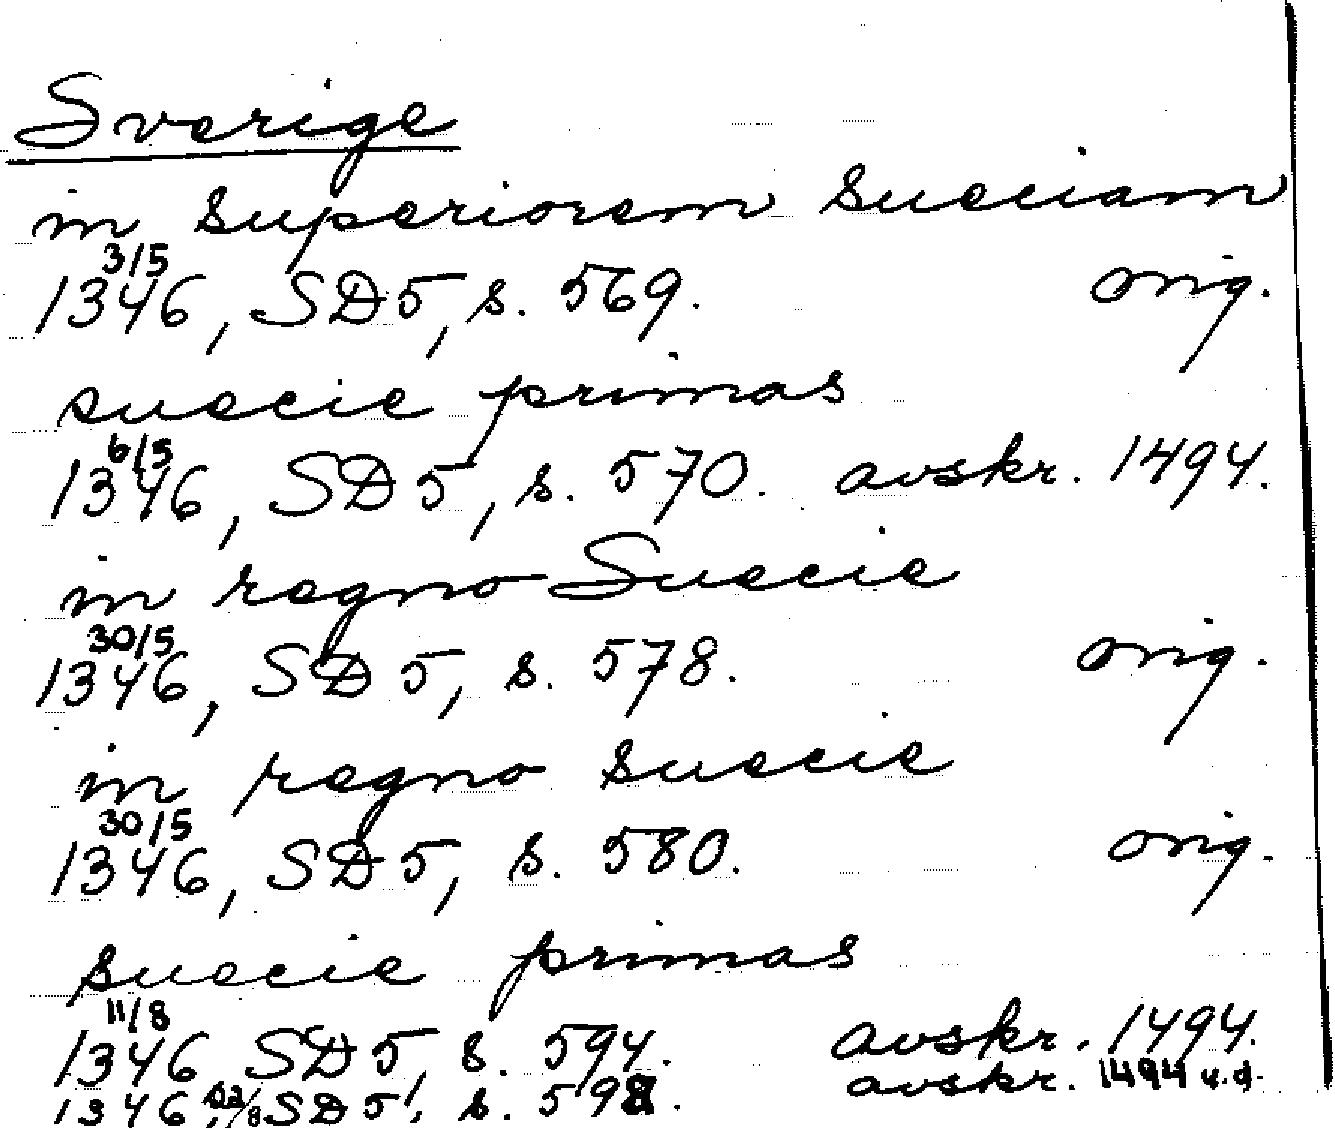 Sverige
in superiorem sueciam
3/5
1346, SD 5, s. 569. orig.
suecie primas
6/5
1346, SD 5, s. 570. avskr. 1494.
in regno Suecie
30/5
1346, SD 5, s. 578. orig.
in regno suecie
30/5
1346, SD 5, s. 580. orig.
suecie primas
11/8
1346 SD 5, s. 594. avskr. 1494.
1346, SD 5, s. avskr. 1494 v.d.